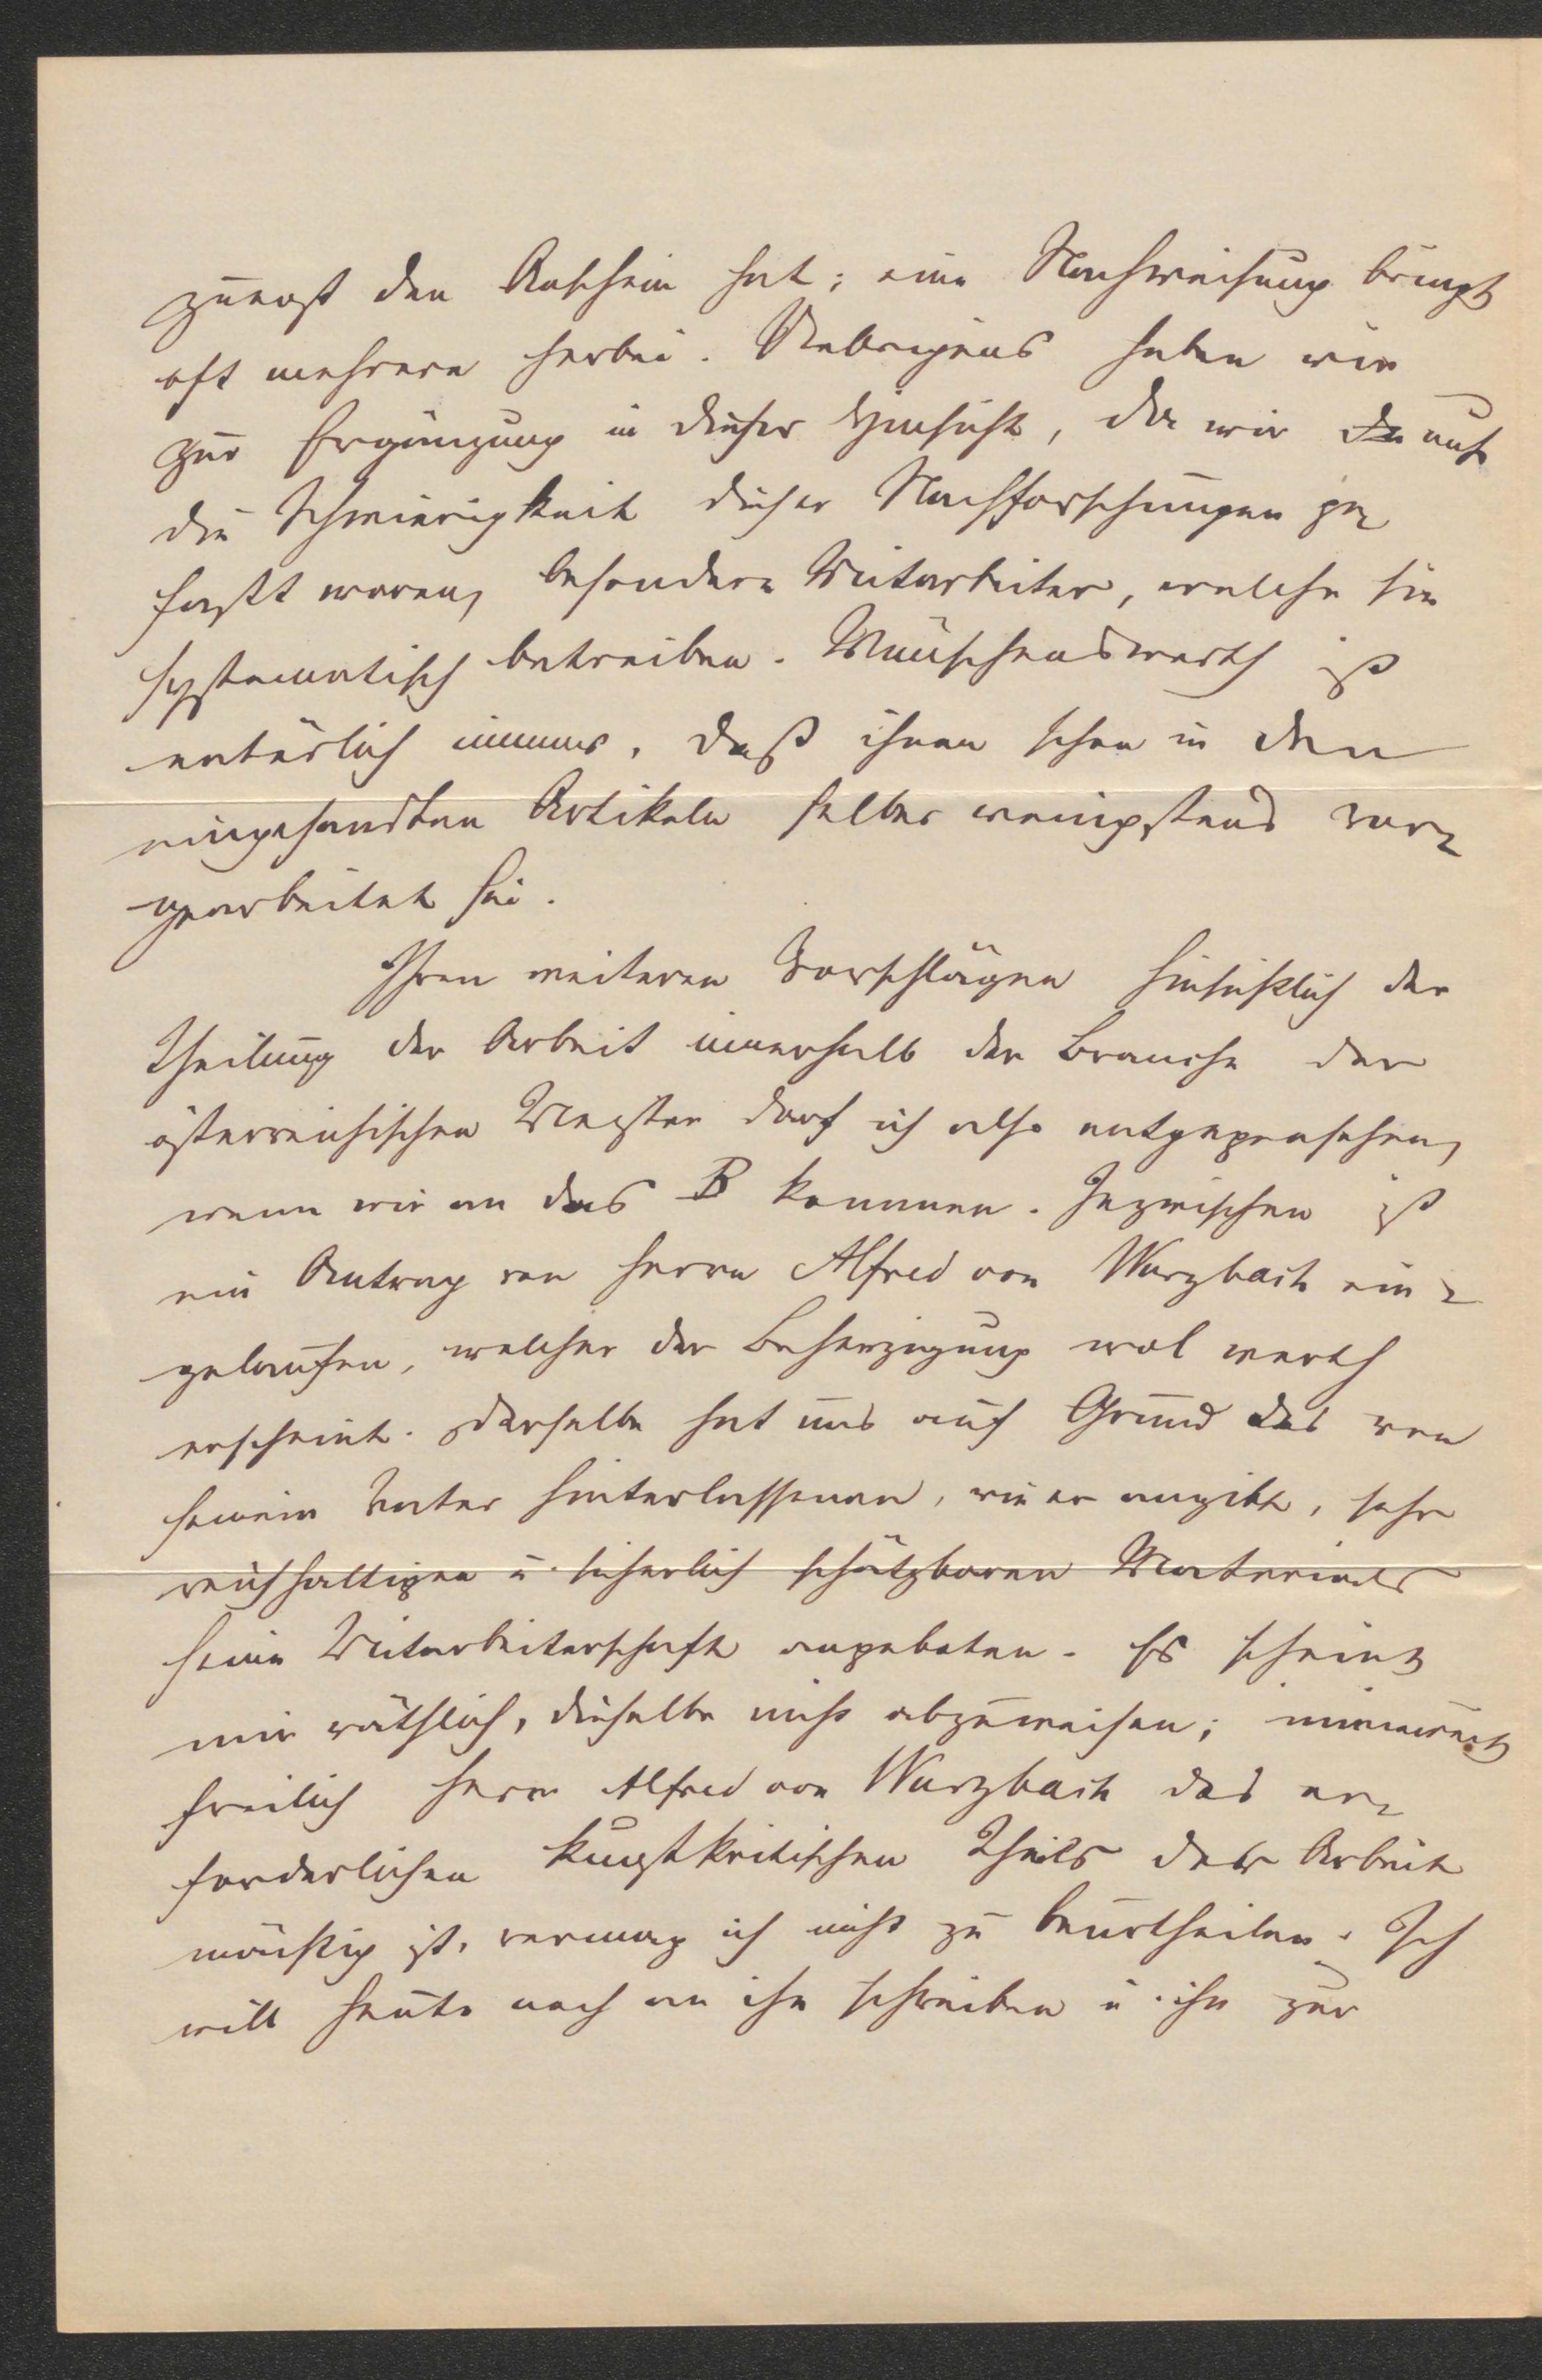 zuerst den Anschein hat; eine Nachweisung bringt
oft mehrere herbei. Uebrigens haben wir
zur Ergänzung in dieser Hinsicht, da wir auf
die Schwierigkeit dieser Nachforschungen ge-
faßt waren, besondere Mitarbeiter, welche sie
systematisch betreiben. Wünschenswerth ist
natürlich immer, daß ihnen schon in den
eingesandten Artikeln selber wenigstens vor-
gearbeitet sei.
Ihren weiteren Vorschlägen hinsichtlich der
Theilung der Arbeit innerhalb der Branche der
österreichischen Meister darf ich also entgegensehen,
wenn wir an das B kommen. Inzwischen ist
ein Antrag von Herrn Alfred von Wurzbach ein-
gelaufen, welcher der Beherzigung wol werth
erscheint. Derselbe hat uns auf Grund des von
seinem Vater hinterlassenen, wie er angibt, sehr
reichhaltigen u. sicherlich schätzbaren Materials
seine Mitarbeiterschaft angeboten. Es scheint
mir räthlich, dieselbe nicht abzuweisen; inwieweit
freilich Herr Alfred von Wurzbach des er-
forderlichen kunstkritischen Theils der Arbeit
mächtig ist, vermag ich nicht zu beurtheilen. Ich
will heute noch an ihn schreiben u. ihn zur